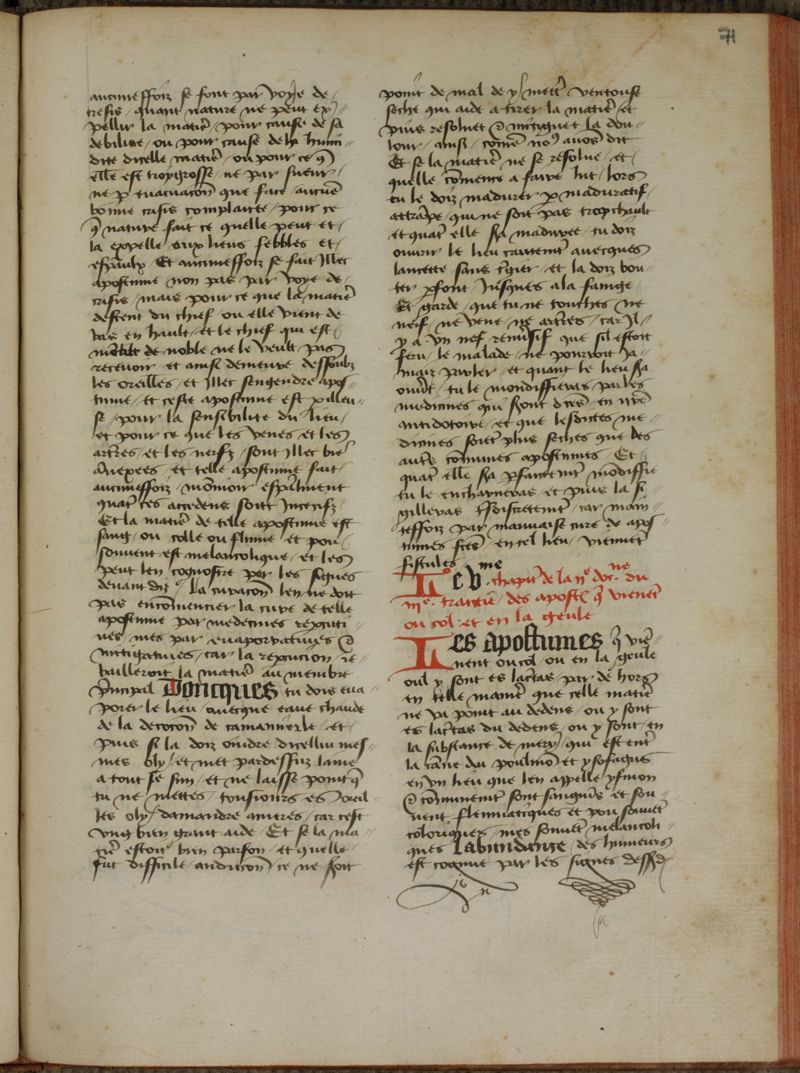 71
aucuneffoiz se font par voye de
cresis quant nature ne peut ex
pellir la matie pour cause de sa
debilite ou pour cause de la humi
dite dicelle matie ou pour ce q
elle est trop grosse ne par sueur
ne p evacuacion que face aucune
bonne crisis complante pour ce
q nature fait ce quelle peut et
la expelle aux lieux febles et
espaulx Et aucuneffoiz se fait illec
apostume non pas par voye de
crisis mais pour ce que la matie
descent du chief ou elle vient de
bas en hault et le chief qui est
noble ne le veult pas
recevoir et ainsi demeure dessoubz
les oreilles et illec sengendre apos
tume et ceste apostume est perilleu
se pour la sensibilite du lieu
et pour ce que les venes et les
artes et les nerfz sont illec bie
et telle apostume fait
aucuneffoiz mourir
quat ces accidens sont
Et la matie de telle apostume est
sang ou colle ou flume et pou
souvent est melancolique et les
peut len cognoistre per les signes
devant diz La curacon len ne doit
pas encommencier la cure de telle
apostume par medecines
ves mes par evaporatives
mitigatives car la repcucion
bailleroit la matie au membre
principal Doncques tu dois eva
porer le lieu avecque eaue chaude
de la decocon de camamierle et
puis si la doiz oindre dicellui mes
mes oly et met pardessuz laine
a tout se sun et ne laisse point q
tu ne mettes tousiours es oreil
les oly damandre ameres car cest
ung bien grant aide Et se la ma
tie estoit bien parfon et quelle
fut difficile ce ne soit
point de mal de y mettre ventouse
seche qui aide a tirer la matie et
puis resolvet mitiguet la dou
lour ainsi come nous avos dit
Et se la matie ne se resolve et
quelle comence a faire lors
tu le doiz madurer p maduratif
attratpe qui ne soit pas trop chault
et quat elle sera maduree tu doiz
ouvrir le lieu cautemet avecques
lancette sans et la doiz bou
ter pfont jusques a la fange
Et garde que tu ne touches ne
nerf ne vene ne artes car il
y a un nerf reversif que sil estoit
feru le malade ne pourroit ja
maiz parler et quant le lieu sera
ouvert tu le mondiffieras par les
medicines qui sont dites en nre
antidotoire et que lesdictes me
dicines soiet plus seches que des
autres comunes apostumes Et
quat elle sera pfaictemet mondiffie
tu le encharneras et puis la si
gilleras discretemet car main
teffoiz par mauvaise cure de apos
tumes fces en tel lieu viennet
fistules
Le V me chapitre de la IIe doc ne du
IIIe traictie des apost q vienet
ou col et en la geule
Les apostumes q vie
nent ou col ou en la geule
oul y sont es lactras par de hors
en telle maniere que celle matie
ne va point au dedens ou y sont
es lactras du dedens ou y sont en
la substance de mery qui est entre
la cane du poulmon et ysofagus
en un lieu que len appelle ysmon
communemet sont sanguins et sou
vent flemmatiques et pou souvet
coloriques mes souvet melancoli
ques Labundance des humeurs
est cogneue par les signes dessusd